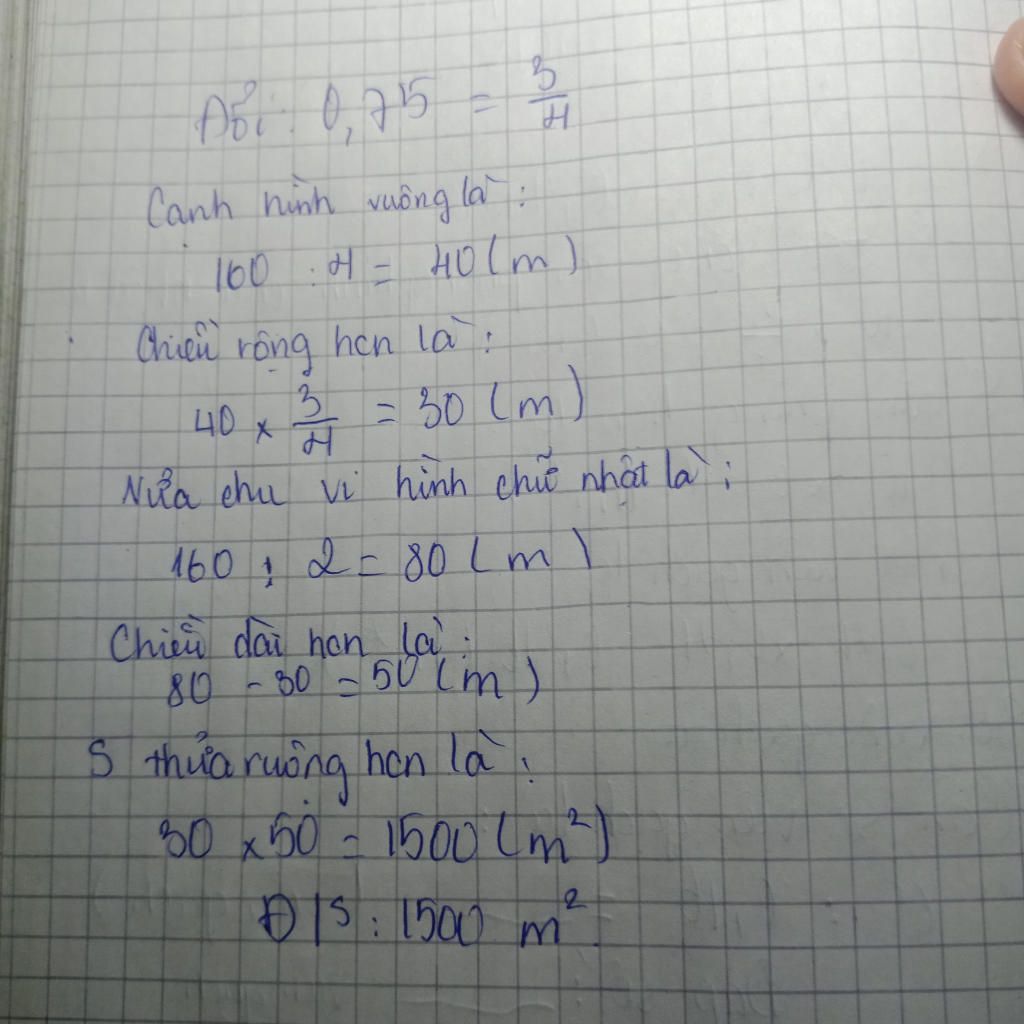 Đổi : 0,75 = 3/4
Cạnh hình vuông là :
160 : 4 = 40 (m)
Chiều rộng hcn là :
40 x 3/4 = 30 (m)
Nửa chu vi hình chữ nhật là :
160 : 2 = 80 (m)
Chiều dài hcn là :
80 - 30 = 50 (m)
S thửa ruộng hcn là :
30 x 50 = 1500 (m²)
Đ/S : 1500 m²